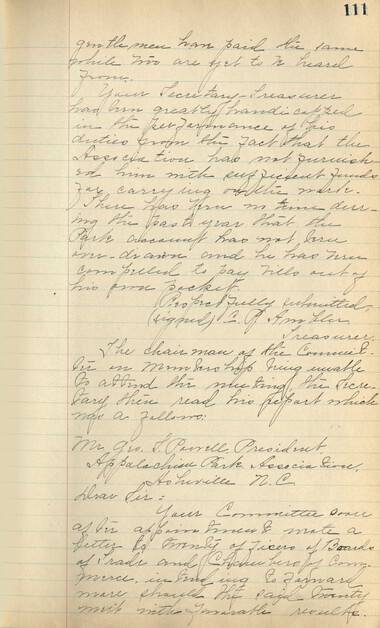 111
gentlemen have paid the same
while two are yet to be heard
from.
Your Secretary-Treasurer
has been greatly handicapped
in the performance of his
duties from the fact that the
Association has not furnish
ed him with sufficient funds
for carrying on the work.
There has been no time dur-
ing the past year that the
Park account has not been
over-drawn and he has been
compelled to pay bills out of
his own pocket.
Respectfully submitted,
(signed) C. P. Ambler
Treasurer.
The chairman of the Commit-
tee on Membership being unable
to attend the meeting, the Secre-
tary then read his report which
was as follows:
Mr. Geo. S. Powell, President
Appalachian Park Association,
Asheville N.C.
Dear Sir:
Your Committee soon
after appointment wrote a
letter to twenty officers of Boards
of Trade and Chambers of Com-
merce, intending to forward
more should the said twenty
meet with favorable results.